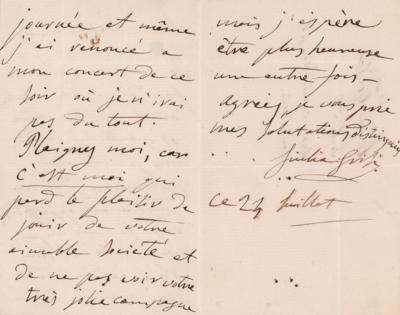 journée et même
j'ai renoncé a
mon concert de ce
soir où je n'irai
pas du tout.
Plaignez moi, car
c'est moi qui
perd le plaisir de
jouir de votre
aimable Societé et
de ne pas voir votre
très jolie campagne
mais j'espère
être plus heureuse
une autre fois –
agréez je vous prie
mes Salutations distinguées
Giulia Grisi
ce 24 Juillet